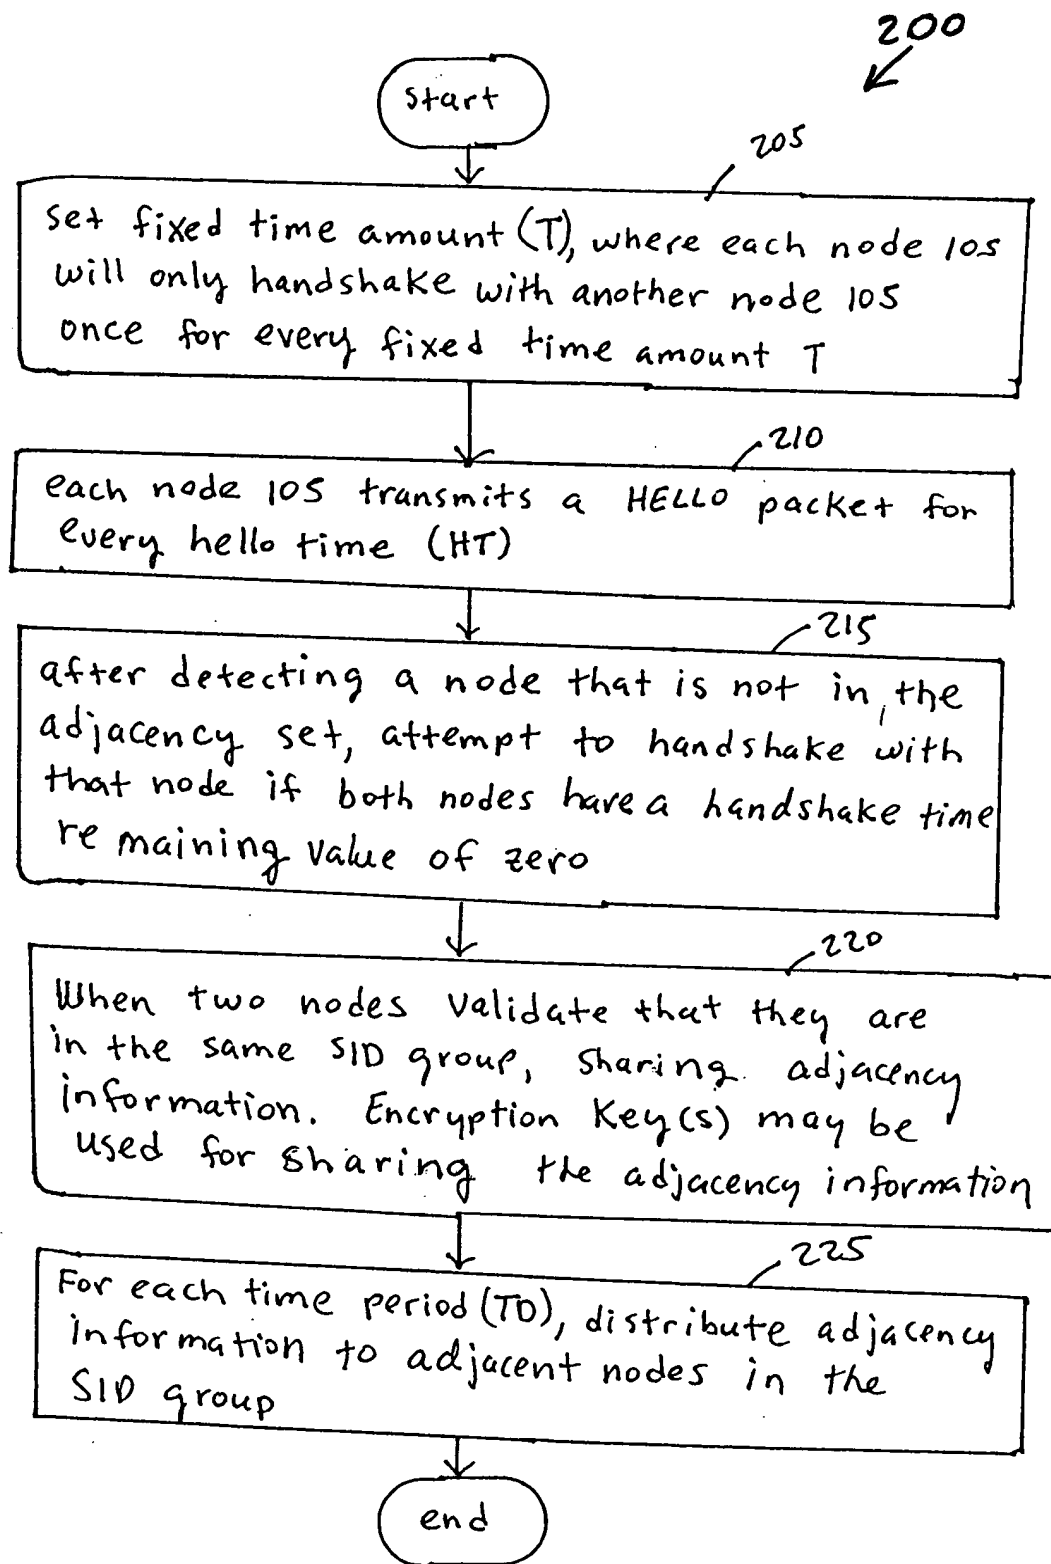 200
start
205
set fixed time amount (T), where each node 105
will only handshake with another node 105
once for every fixed time amount T
210
each node 105 transmits a HELLO packet for
every hello time (HT)
215
after detecting a node that is not in the
adjacency set, attempt to handshake with
that node if both nodes have a handshake time
re maining value of zero
220
When two nodes validate that they are
in the same SID group, sharing adjacency
information. Encryption Key(s) may be
used for sharing the adjacency information
225
For each time period (TD), distribute adjacency
information to adjacent nodes in the
SID group
end